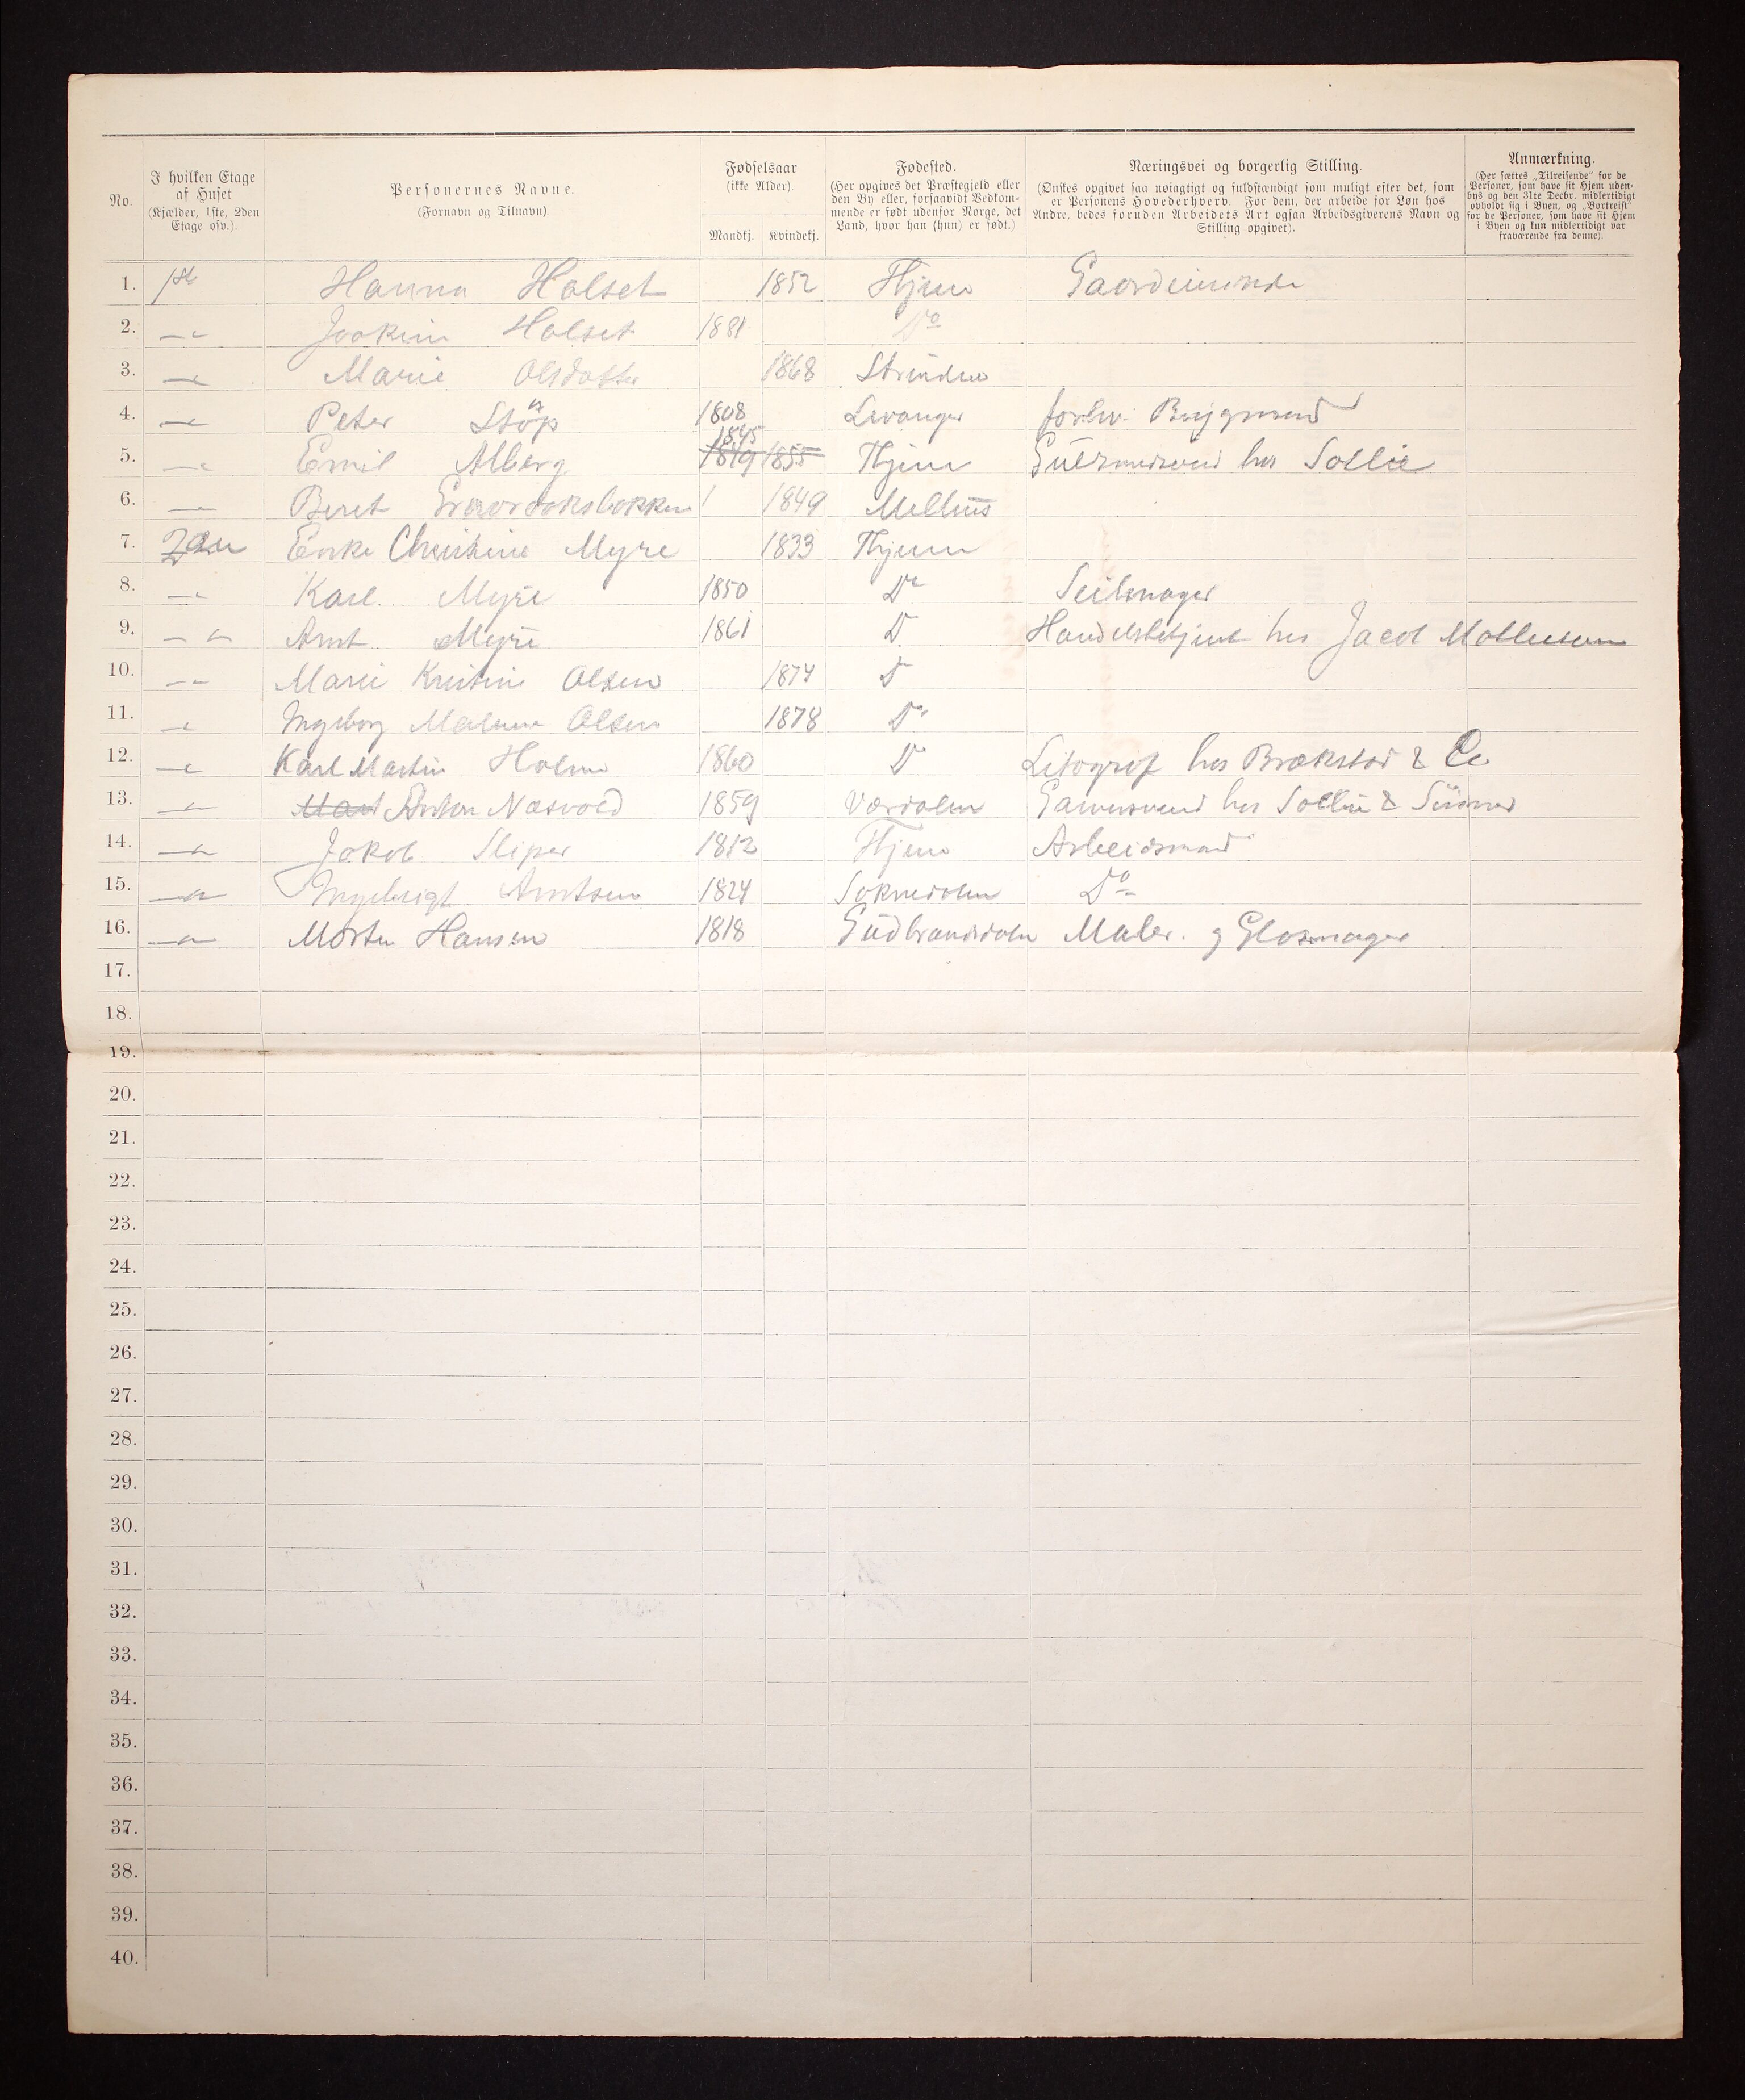 No.
I hvilken Etage af Huset (Kjælder, 1ste, 2den Etage osv.).
Personernes Navne. (Fornavn og Tilnavn)
Fødselsaar (ikke Alder).
Mandkj. Kvindekj.
Fødested. (Her opgives det Præstegjeld eller den By eller, forsaavidt Vedkommende er født udenfor Norge, det Land, hvor han (hun) er født.)
Næringsvei og borgerlig Stilling. (Ønskes opgivet saa nøiagtigt og fuldstændigt som muligt efter det, som er Personens Hovederhverv. For dem, der arbeide for Løn hos Andre, bedes foruden Arbeidets Art ogsaa Arbeidsgiverens Navn og Stilling opgivet).
Anmærkning. (Her sættes „Tilreisende" for de Personer, som have sit Hjem udenbys og den 31te Decbr. midlertidigt opholdt sig i Byen, og „Bortreist" for de Personer, som have sit Hjem i Byen og kun midlertidigt var fraværende fra denne).
1. 1ste Hanna Halset 1852 Thjem
2. Joakim Halset 1881 Do
3. Marie Olsdatter 1868 Strinden
4. Peter Støp 1808 Levanger forhv. Bygmand
5. Emil Alberg 1845 1819 1855 Thjem hos Sollie
6. Beret 1849 Melhus
7. 2den Enke Christine Myre 1833 Thjem
8. Karl Myre 1850 Do Seilmager
9. Arnt Myre 1861 D Handelsbetjent hos Jacob Matheson
10. Marie Kristine Olsen 1874 D
11. Ingeborg Olsen 1878 Do
12. Karl Martin Holm 1860 D Litograf hos Brækstad & Co
13. Anton Næsvold 1859 Værdalen hos Sollie & Sønner
14. Jakob Sliper 1812 Thjem Arbeidsmand
15. Ingebrigt Arntsen 1824 Soknedalen Do
16. Morten Hansen 1818 Gudbrandsdalen Maler. og Glasmager
17.
18.
19.
20.
21.
22.
23.
24.
25.
26.
27.
28.
29.
30.
31.
32.
33.
34.
35.
36.
37.
38.
39.
40.